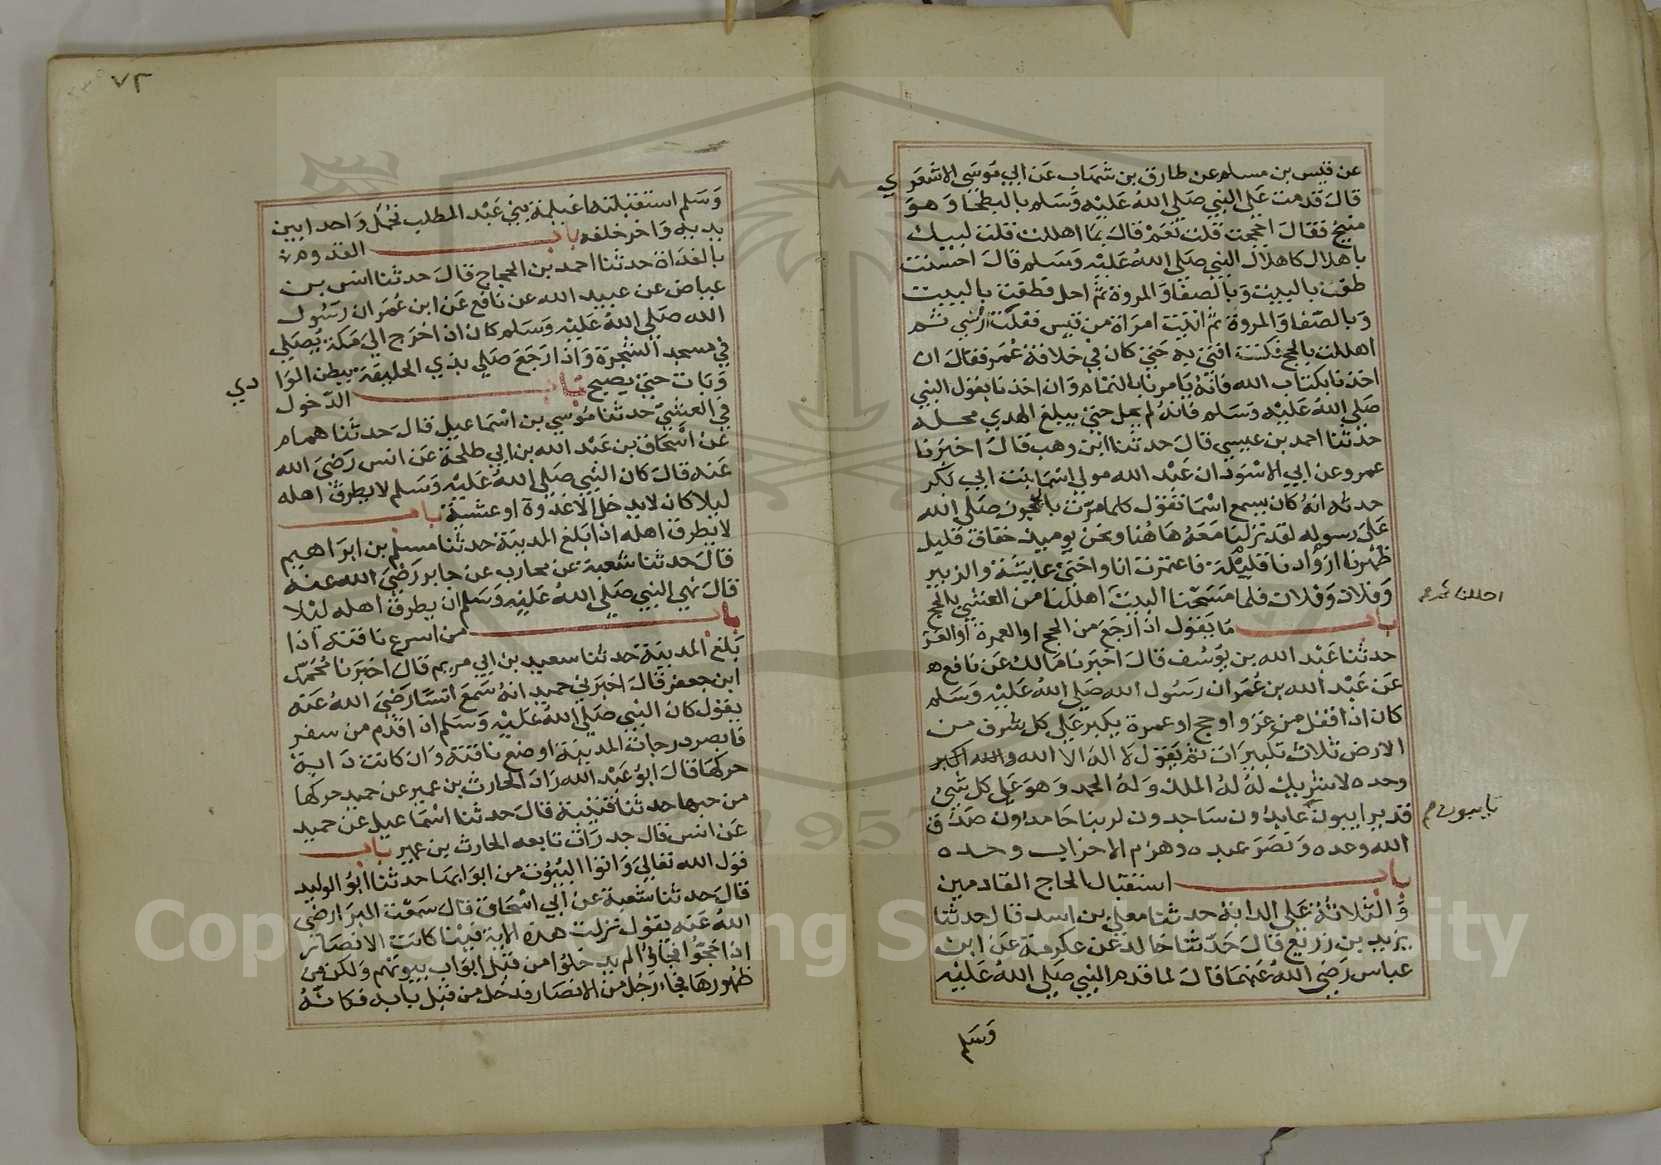 عن قيس بن مسلم عن طارق بن شهاب عن ابي موسى الاشعري
قال قدمت على النبي صلى الله عليه وسلم بالبطحا وهو
منيخ فقال احججت قلت نعم قال بما اهللت قلت لبيك
باهلال كاهلال النبي صلى الله عليه وسلم قال احسنت
طف بالبيت وبالصفا والمروة ثم احل فطفت بالبيت
وبالصفا والمروة ثم اتيت امراة من قيس ففلت راسي ثم
اهللت بالحج فكنت افتي به حتى كان في خلافة عمر فقال ان
اخذنا بكتاب الله فانه يامرنا بالتمام وان اخذنا بقول النبي
صلى الله عليه وسلم فانه لم يحل حتى يبلغ الهدي محله
حدثنا احمد بن عيسى قال حدثنا ابن وهب قال اخبرنا
عمرو عن ابي الاسود ان عبد الله مولى اسما بنت ابي بكر
حدثه انه كان يسمع اسما تقول كلما مرت بالحجون صلى الله
على رسوله لقد نزلنا معه هاهنا ونحن يوميذ خفاف قليل
ظهرنا ازوادنا قليلة فاعتمرت انا واختي عايشة والزبير
وفلان وفلان فلما مسحنا البيت اهللنا من العشي بالحج
احللنا ثم صح
باب ما يقول اذا رجع من الحج او العمرة او الغزو
حدثنا عبد الله بن يوسف قال اخبرنا مالك عن نافع
عن عبد الله بن عمر ان رسول الله صلى الله عليه وسلم
كان اذا قفل من غزو او حج او عمرة يكبر على كل شرف من
الارض ثلاث تكبيرات ثم يقول لا اله الا الله والله اكبر
وحده لا شريك له له الملك وله الحمد وهو على كل شي
قدير ايبون عابدون ساجدون لربنا حامدون صدق
تايبون صح
الله وعده ونصر عبده وهزم الاحزاب وحده
باب استقبال الحاج القادمين
والثلاثة على الدابة حدثنا معلى بن اسد قال حدثنا
يزيد بن زريع قال حدثنا خالد عن عكرمة عن ابن
عباس رضي الله عنهما قال لما قدم النبي صلى الله عليه
وسلم
٧٢
وسلم استقبلته اغيلمة بني عبد المطلب فحمل واحدا بين
يديه واخر خلفه باب القدوم
بالغداة حدثنا احمد بن الحجاج قال حدثنا انس بن
عياض عن عبيد الله عن نافع عن ابن عمر ان رسول
الله صلى الله عليه وسلم كان اذا خرج الى مكة يصلي
في مسجد الشجرة واذا رجع صلى بذي الحليفة ببطن الوادي
وبات حتى يصبح باب الدخول
في العشي حدثنا موسى بن اسماعيل قال حدثنا همام
عن اسحاق بن عبد الله بن ابي طلحة عن انس رضى الله
عنه قال كان النبي صلى الله عليه وسلم لا يطرق اهله
ليلا كان لا يدخل الا غدوة او عشية باب
لا يطرق اهله اذا بلغ المدينة حدثنا مسلم بن ابراهيم
قال حدثنا شعبة عن محارب عن جابر رضى الله عنه
قال نهى النبي صلى الله عليه وسلم ان يطرق اهله ليلا
باب من اسرع ناقته اذا
بلغ المدينة حدثنا سعيد بن ابي مريم قال اخبرنا محمد
ابن جعفر قال اخبرني حميد انه سمع انسا رضى الله عنه
يقول كان النبي صلى الله عليه وسلم اذا قدم من سفر
فابصر درجات المدينة اوضع ناقته وان كانت دابة
حركها قال ابو عبد الله زاد الحارث بن عمير عن حميد حركها
من حبها حدثنا قتيبة قال حدثنا اسماعيل عن حميد
عن انس قال جدرات تابعه الحارث بن عمير باب
قول الله تعالى واتوا البيوت من ابوابها حدثنا ابو الوليد
قال حدثنا شعبة عن ابي اسحاق قال سمعت البرا رضى
الله عنه يقول نزلت هذه الاية فينا كانت الانصار
اذا حجوا فجاؤا لم يدخلوا من قبل ابواب بيوتهم ولكن من
ظهورها فجاء رجل من الانصار فدخل من قبل بابه فكانه
Copyright © King Saud University
1957